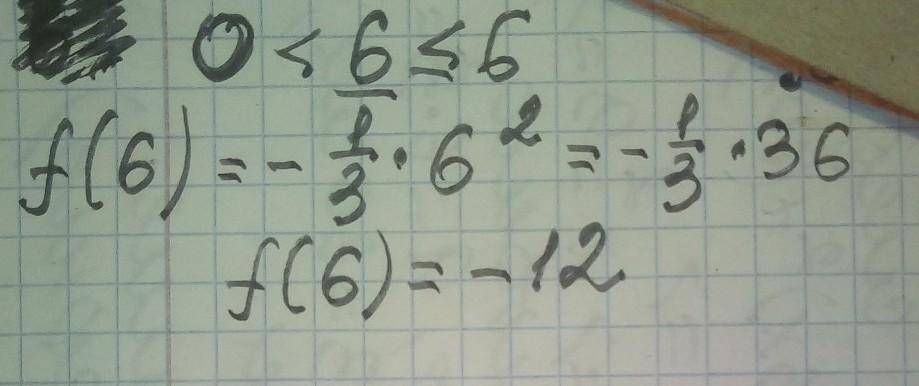 0 < 6 ≤ 6
f(6) = - 1/3 · 6² = - 1/3 · 36
f(6) = -12